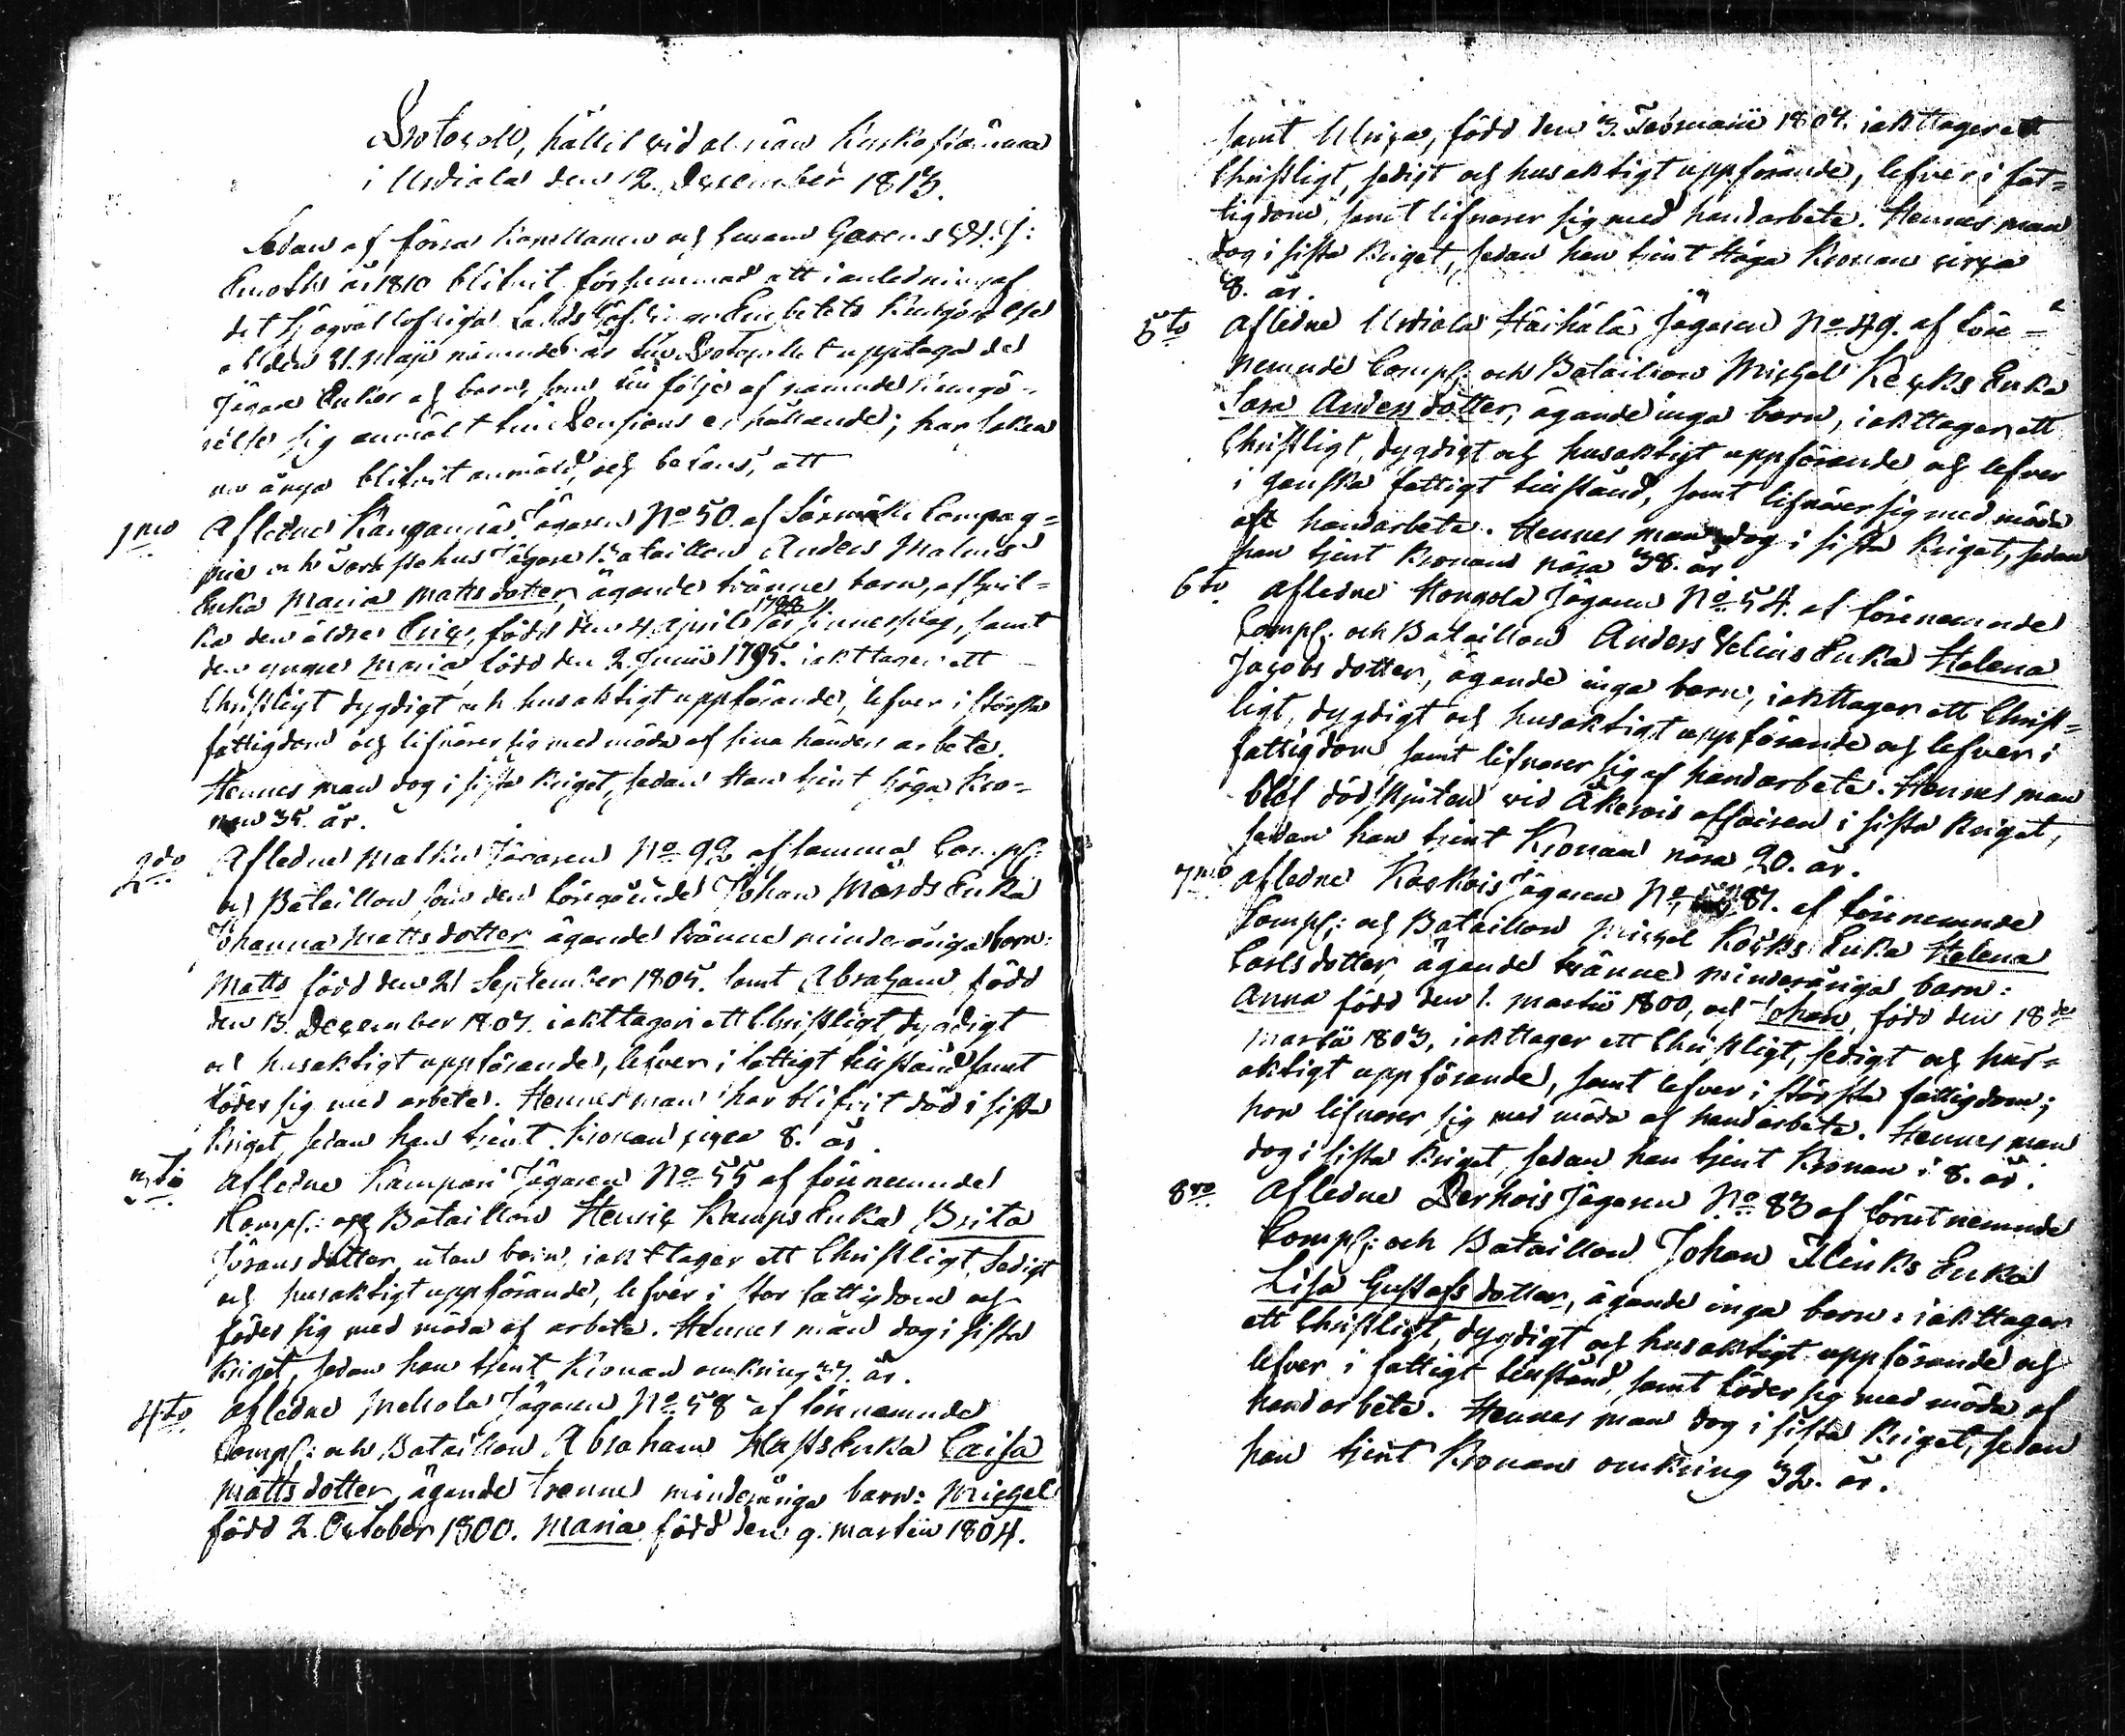 Protocoll, hållit vid almän Kyrkostämma
i Urdiala den 12. December 1813.
Sedan af förra Kapellanen och
år 1810 blifvit försummad att i anledning af
det Högvällofliga Lands Höfdinge Embetets Kungörelse
af den 21. Maji nämnde år til Protocollet upptaga de
Jägare Enkor och barn, som til följe af nämnde Kungö-
relse sig anmält til Pensions erhållande; har saken
nu ånyo blifvit anmäld, och befans, att
1mo Afledne Kanganniä Jägaren No 50. af Särmäki Compag=
nie och Tavastehus Jägare Bataillon Anders Malms
Enka Maria Mattsdotter, ägande tvänne barn, af hvil=
ka den äldre Eric, född den 4 April 1788 är sinnessvag, samt
den yngre Maria född den 2. Junii 1795. iakttager ett
Christligt dygdigt och husaktigt uppförande, lefver i största
fattigdom och lifnärer sig med möda af sina händers arbete.
Hennes man dog i sista Kriget, sedan Han tjent höga Kro=
nan 35. år.
2do Afledne Malkin Jägaren No 92 af samma Comps:
och Bataillon som den föregående Johan Mårds Enka
Johanna Mattsdotter ägande tvänne minderåriga barn:
Matts född den 21 September 1805. samt Abraham, född
den 13. December 1807. iakttager ett Christligt, dygdigt
och husaktigt uppförande, lefver i fattigt tilstånd samt
föder sig med arbete. Hennes man har blifvit död i sista
Kriget, sedan han tjent Kronan circa 8. år.
3tio Afledne Kampari Jägaren No 55 af förenemnde
Comps: och Bataillon Henric Kamps Enka Brita
Jöransdotter, utan barn, iakttager ett Christligt, sedigt
och husaktigt uppförande, lefver i stor fattigdom och
föder sig med möda af arbete. Hennes man dog i sista
Kriget, sedan han tjent Kronan omkring 37. år.
4to Afledne Jägaren No 58 af förenemnde
Comps: och Bataillon Abraham Enka Caisa
Mattsdotter, ägande trenne minderåriga barn: Michel
född 2. October 1800. Maria född den 9. Martii 1804.
samt Ulrica, född den 3. Februarii 1807. iakttager ett
Christligt, sedigt och husaktigt uppförande, lefver i fat=
tigdom, samt lifnärer sig med handarbete. Hennes man
dog i sista Kriget, sedan han tjent Höga Kronan circa
8. år.
5to Afledne Urdiala Häihälä Jägaren No 49. af före=
nemnde Comps: och Bataillon Michel Kecks Enka
Sara Andersdotter, ägande inga barn, iakttager ett
Christligt, dygdigt och husaktigt uppförande och lefver
i ganska fattigt tilstånd, samt lifnärer sig med möda
af handarbete. Hennes man dog i sista Kriget, sedan
han tjent Kronan nära 38. år.
6to Afledne Hongola Jägaren No 54. af förenemnde
Comps: och Bataillon Anders Enka Helena
Jacobsdotter, ägande inga barn, iakttager ett Christ=
ligt, dygdigt och husaktigt uppförande och lefver i
fattigdom, samt lifnärer sig af handarbete. Hennes man
blef död skjuten vid affairen i sista Kriget,
sedan han tjent Kronan nära 20. år.
7mo Afledne Kockois Jägaren No 87. af förenemnde
Comps: och Bataillon Michel Kocks Enka Helena
Carlsdotter, ägande tvänne minderåriga barn:
Anna född den 1. Martii 1800, och Johan, född den 18de
Martii 1803, iakttager ett Christligt, sedigt och hus=
aktigt uppförande, samt lefver i största fattigdom;
hon lifnärer sig med möda af handarbete. Hennes man
dog i sista Kriget, sedan han tjent Kronan i 8. år.
8vo Afledne Perhois Jägaren No 83 af förutnemnde
Comps: och Bataillon Johan Flinks Enka
Lisa Gustafsdotter, ägande inga barn: iakttager
ett Christligt, dygdigt och husaktigt uppförande och
lefver i fattigt tilstånd, samt föder sig med möda af
handarbete. Hennes man dog i sista Kriget, sedan
han tjent Kronan omkring 32. år.